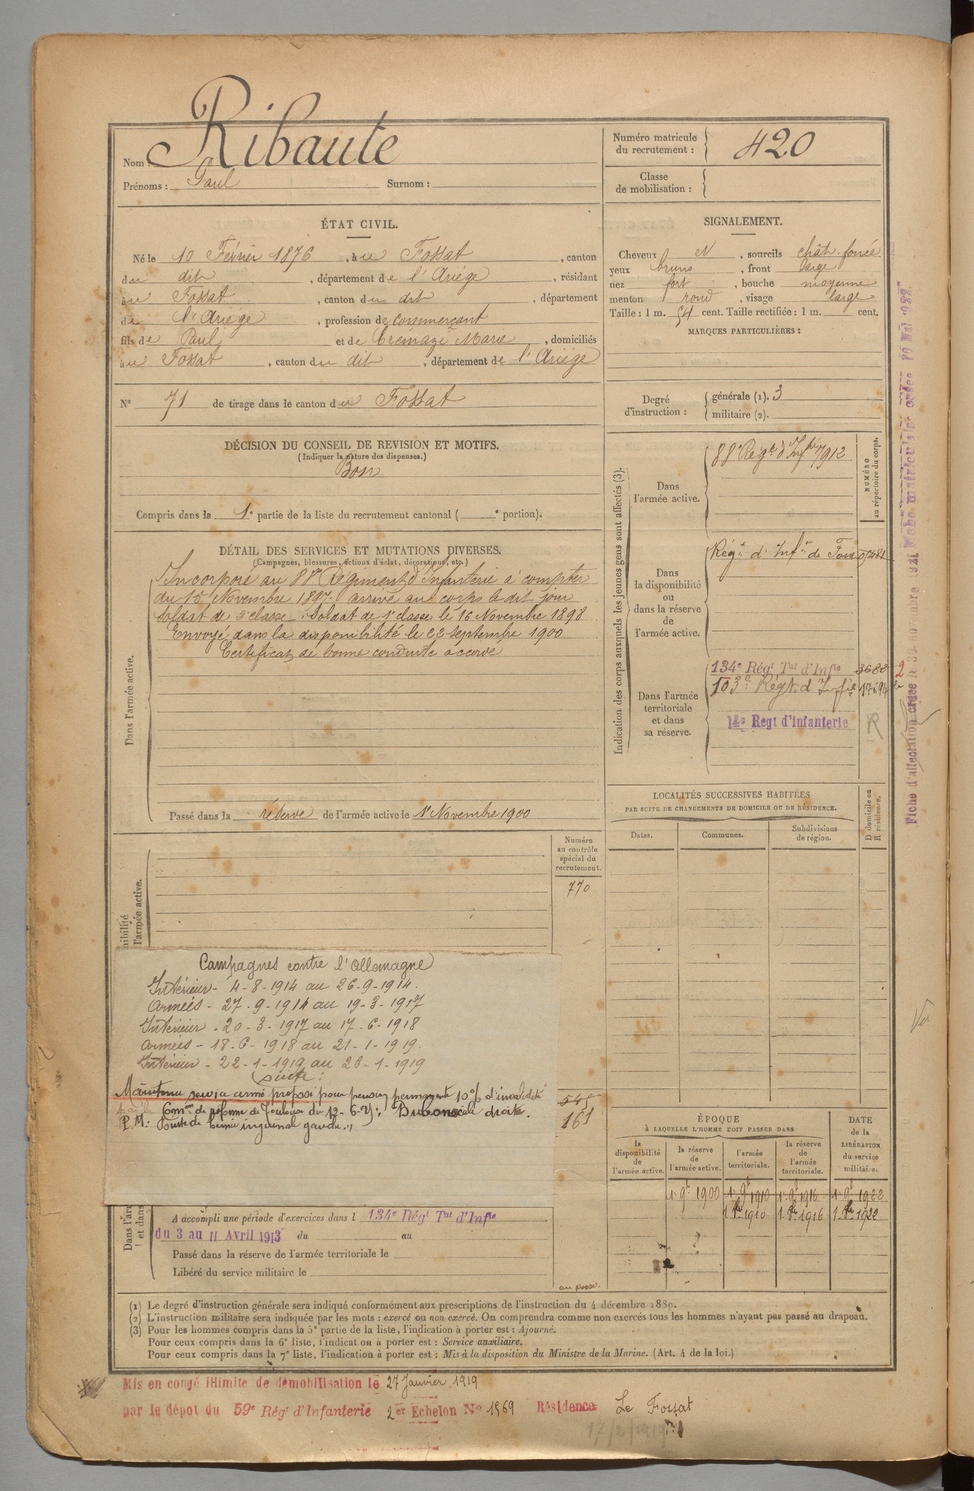 Nom : Ribaute
Prénoms : Paul Surnom :
Numéro matricule du recrutement : 420
Classe de mobilisation :
ÉTAT CIVIL.
Né le 10 Février 1876, à Fossat, canton
du dit, département de l'Ariège, résidant
au Fossat, canton du dit, département
de l'Ariège, profession de commerçant
fils de Paul et de Cremazi Marie, domiciliés
au Fossat, canton du dit, département de l'Ariège
N° 71 de tirage dans le canton du Fossat
DÉCISION DU CONSEIL DE REVISION ET MOTIFS.
(Indiquer la nature des dispenses.)
Bon
Compris dans la 1e partie de la liste du recrutement cantonal ( e portion).
SIGNALEMENT.
Cheveux N, sourcils chât. foncé
yeux bruns, front large
nez fort, bouche moyenne
menton rond, visage large
Taille : 1 m. 54 cent. Taille rectifiée : 1 m. cent.
MARQUES PARTICULIÈRES :
Degré d'instruction : générale (1). 3
militaire (2).
DÉTAIL DES SERVICES ET MUTATIONS DIVERSES.
(Campagnes, blessures, actions d'éclat, décorations, etc.)
Dans l'armée active.
Incorporé au Régiment d'Infanterie à compter
du 15 Novembre 1897 arrivé au corps le dit jour
soldat de 2e classe. Soldat de 1e classe le 16 Novembre 1898
Envoyé dans la disponibilité le 23 Septembre 1900
Certificat de bonne conduite accordé
Passé dans la réserve de l'armée active le 1er Novembre 1900
Indication des corps auxquels les jeunes gens sont affectés (3).
NUMÉRO au répertoire du corps.
Dans l'armée active.
88e Régt d'Infrie 7912
Dans la disponibilité ou dans la réserve de l'armée active.
Régt d'Infie de Foix
Dans l'armée territoriale et dans sa réserve.
134e Régt Tal d'Infie 3688
103e Régt d'Infie
14e Regt d'infanterie
R
2
LOCALITÉS SUCCESSIVES HABITÉES
PAR SUITE DE CHANGEMENTS DE DOMICILE OU DE RÉSIDENCE.
Dates. Communes. Subdivisions de région. D domicile ou R résidence.
Numéro au contrôle spécial du recrutement.
770
Campagnes contre l'Allemagne
Intérieur - 4-8-1914 au 26-9-1914.
Armées - 27-9-1914 au 19-3-1917
Intérieur - 20-3-1917 au 17-6-1918
Armées - 18-6-1918 au 21-1-1919.
Intérieur - 22-1-1919 au 26-1-1919
(suite :
Maintenu service armé proposé pour pension permanente 10% d'invalidité
Comon de réforme de Toulouse du 12-6-
droite.
P.M. : inguinale gauche.
161
ÉPOQUE
À LAQUELLE L'HOMME DOIT PASSER DANS
la disponibilité de l'armée active.
la réserve de l'armée active.
l'armée territoriale.
la réserve de l'armée territoriale.
DATE de la LIBÉRATION du service militaire.
1 9e 1900 1 9e 1910 1 9e 1916 1 9e 1922
1 8re 1910 1 8re 1916 1 8re 1922
A accompli une période d'exercices dans l 134e Régt Tal d'Infie
du 3 au 11 Avril 1913 du au
Passé dans la réserve de l'armée territoriale le
Libéré du service militaire le
(1) Le degré d'instruction générale sera indiqué conformément aux prescriptions de l'instruction du 4 décembre 1889.
(2) L'instruction militaire sera indiquée par les mots : exercé ou non exercé. On comprendra comme non exercés tous les hommes n'ayant pas passé au drapeau.
(3) Pour les hommes compris dans la 5e partie de la liste, l'indication à porter est : Ajourné.
Pour ceux compris dans la 6e liste, l'indication à porter est : Service auxiliaire.
Pour ceux compris dans la 7e liste, l'indication à porter est : Mis à la disposition du Ministre de la Marine. (Art. 4 de la loi.)
Mis en congé illimité de démobilisation le 27 Janvier 1919
par le dépôt du 59e Régt d'Infanterie 2er Echelon N° 1969 Résidence Le Fossat
17/2/1919